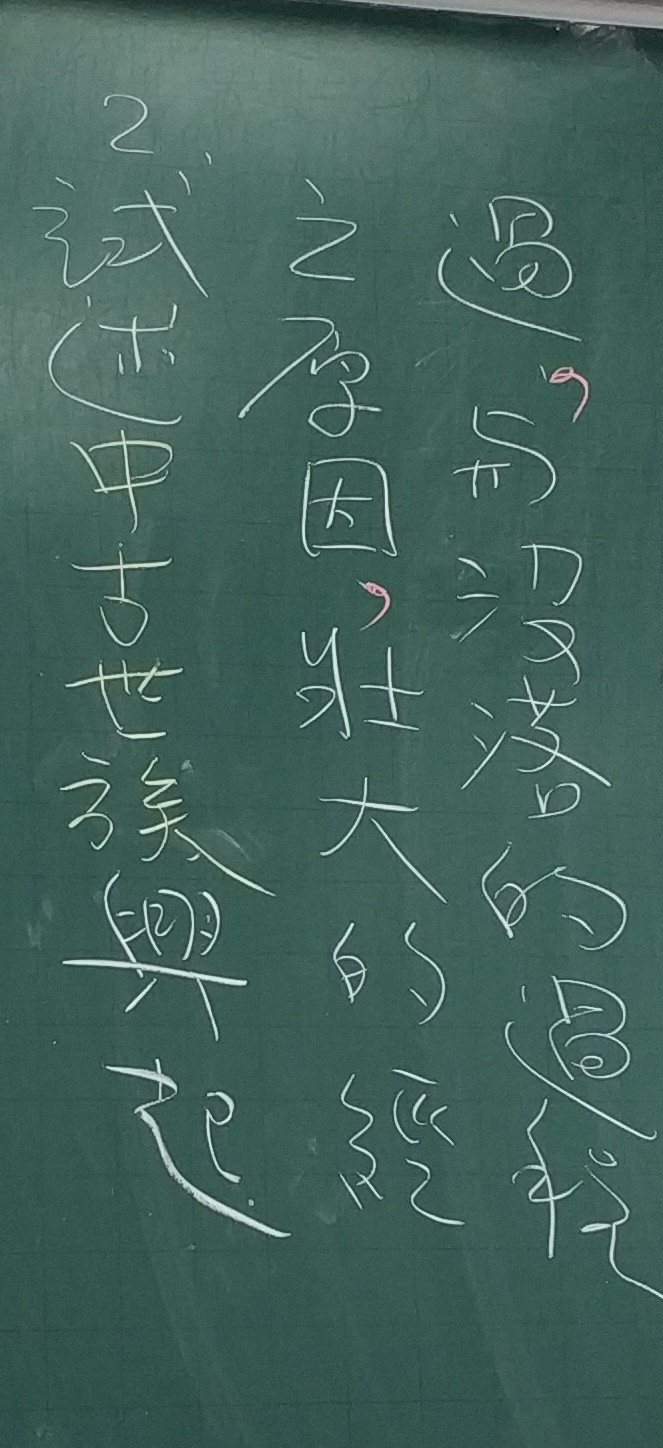 2.試述中古世族興起
之原因,壯大的經
過,与沒落的過程